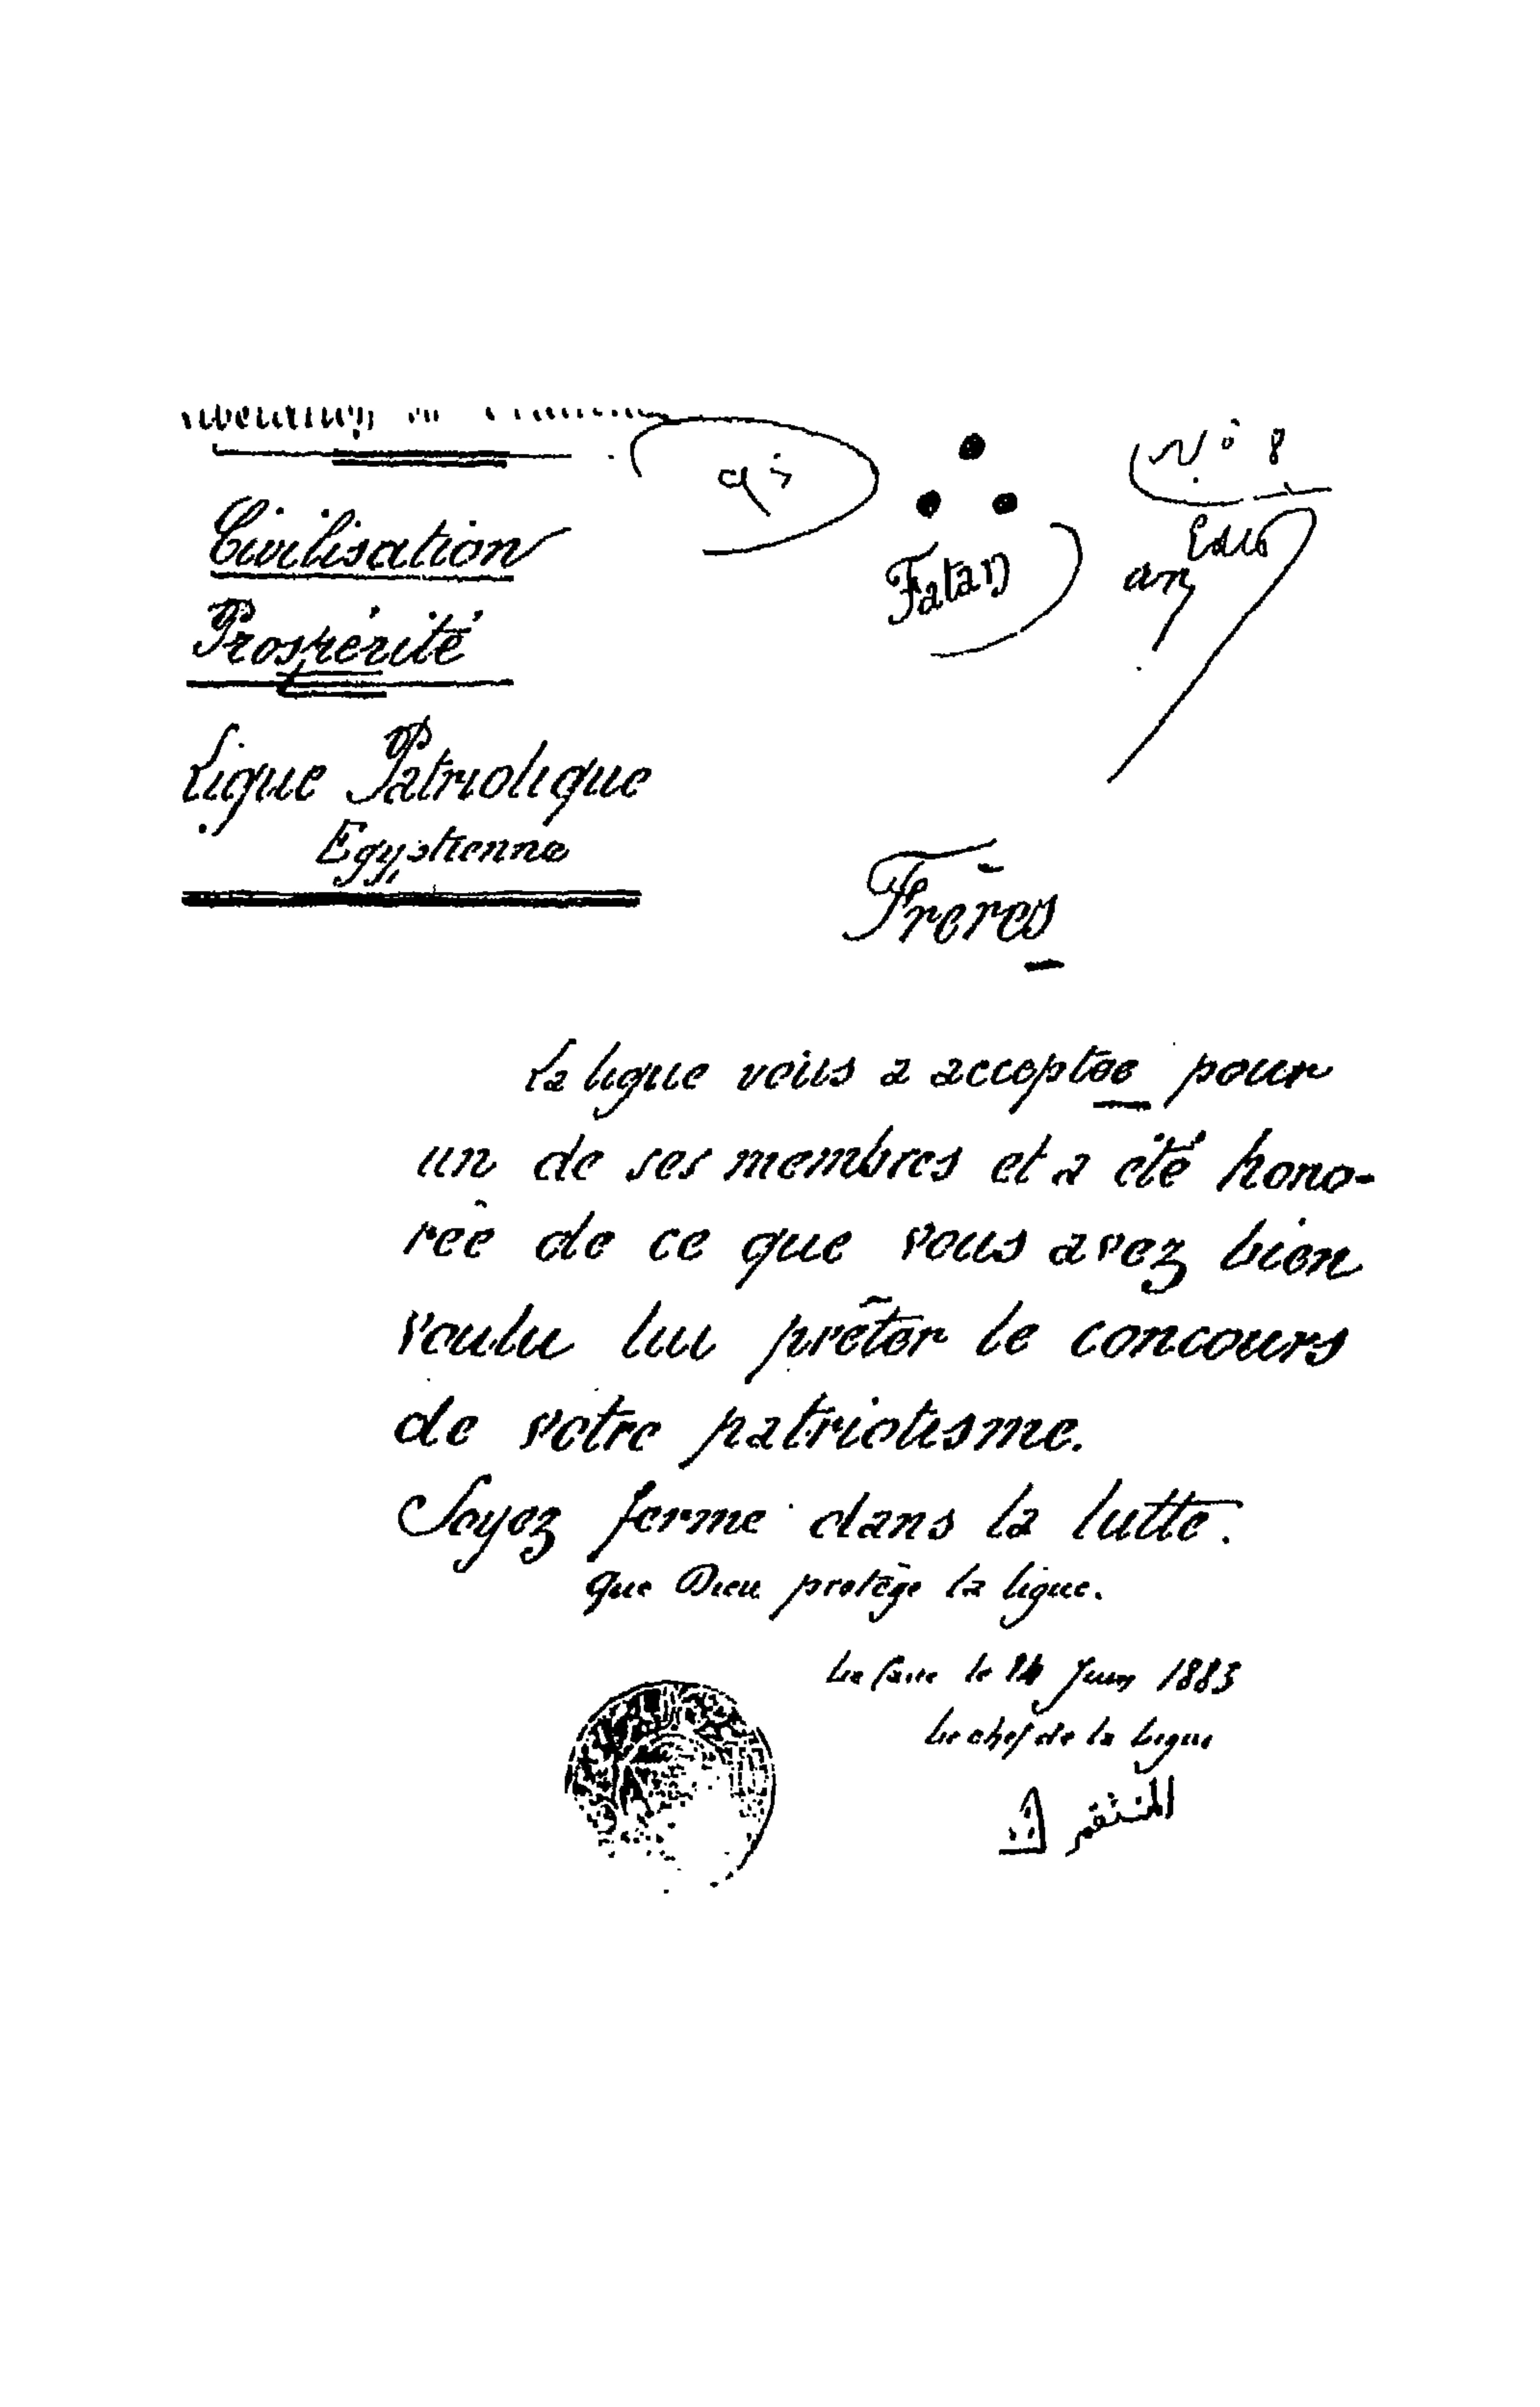 N° 8
Civilisation
Prospérité
Fatan
Ligue Patriotique
Egyptienne
Frères
La ligue vous a acceptée pour
un de ses membres et a été hono-
rée de ce que vous avez bien
voulu lui prêter le concours
de votre patriotisme.
Soyez ferme dans la lutte.
que Dieu protège la ligue.
Le Caire le 14 Juin 1883
Le chef de la Ligue
المنتقم